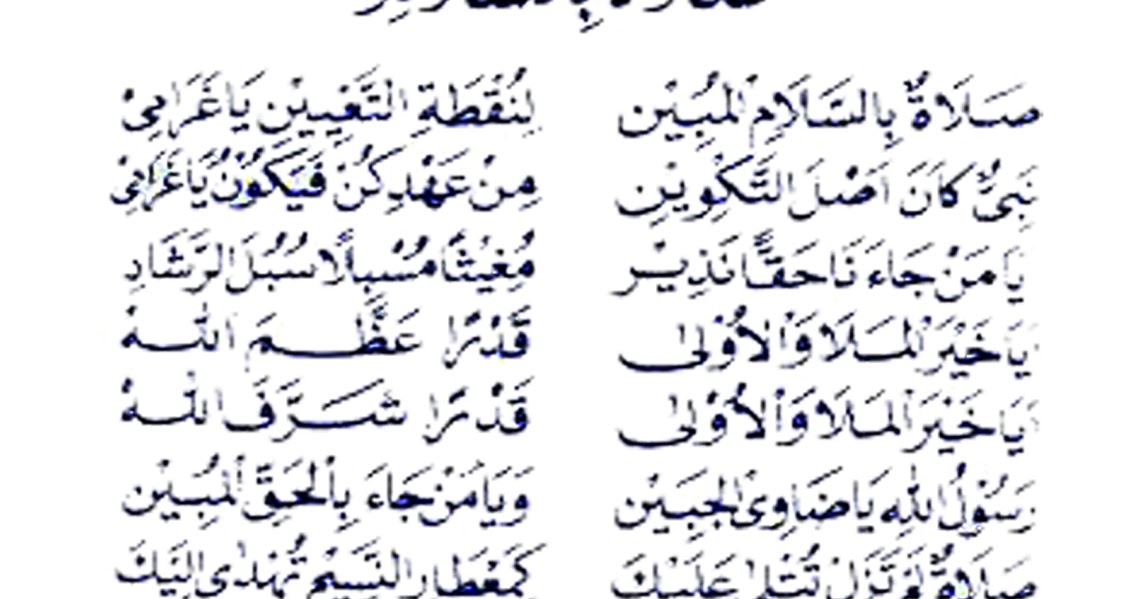 صَلَاةٌ بِالسَّلَامِ الْمُبِيْنِ لِنُقْطَةِ التَّعْيِيْنِ يَا غَرَامِيْ
نَبِيٌّ كَانَ اَصْلَ التَّكْوِيْنِ مِنْ عَهْدِ كُنْ فَيَكُوْنُ يَا غَرَامِيْ
يَا مَنْ جَاءَنَا حَقًّا نَذِيْر مُغِيْثًا مُسْبِلًا سُبُلَ الرَّشَادِ
يَا خَيْرَ الْمَلَا وَالْاُوْلٰى قَدْرًا عَظَّمَ اللّٰهُ
يَا خَيْرَ الْمَلَا وَالْاُوْلٰى قَدْرًا شَرَّفَ اللّٰهُ
رَسُوْلُ اللّٰهِ يَا ضَاوِى الْجَبِيْن وَيَا مَنْ جَاءَ بِالْحَقِّ الْمُبِيْن
صَلَاةٌ لَمْ تَزَلْ تُتْلٰى عَلَيْكَ كَمِعْطَارِ النَّسِيْمِ تُهْدٰى اِلَيْكَ